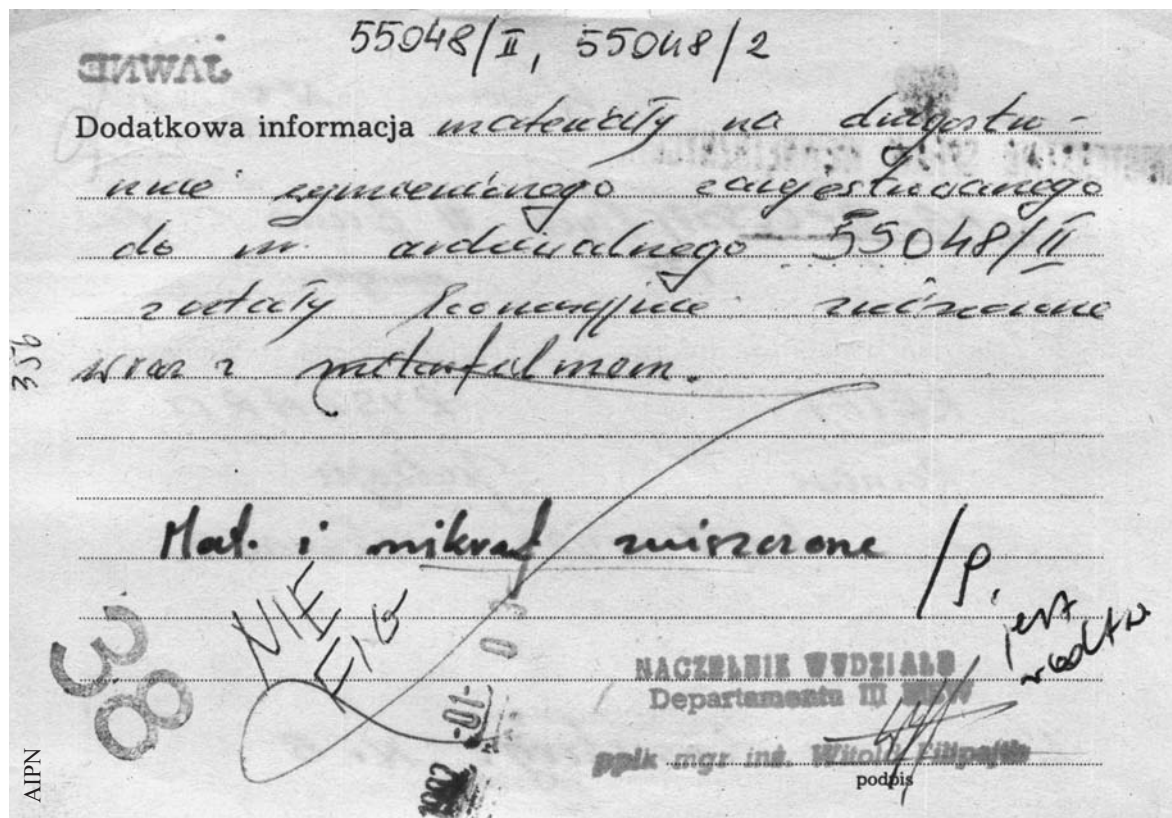 55048/II, 55048/2
JAWNE
Dodatkowa informacja materiały na drugostro-
nnie wymienionego zarejestrowanego
do nr. archiwalnego 55048/II
zostały komisyjnie zniszczone
wraz z mikrofilmem.
356
Mat. i mikrof zniszczone /P.
NIE
FIG
jest
38
NACZELNIK WYDZIAŁU
Departamentu III MSW
ppłk mgr inż. Witold
podpis
AIPN